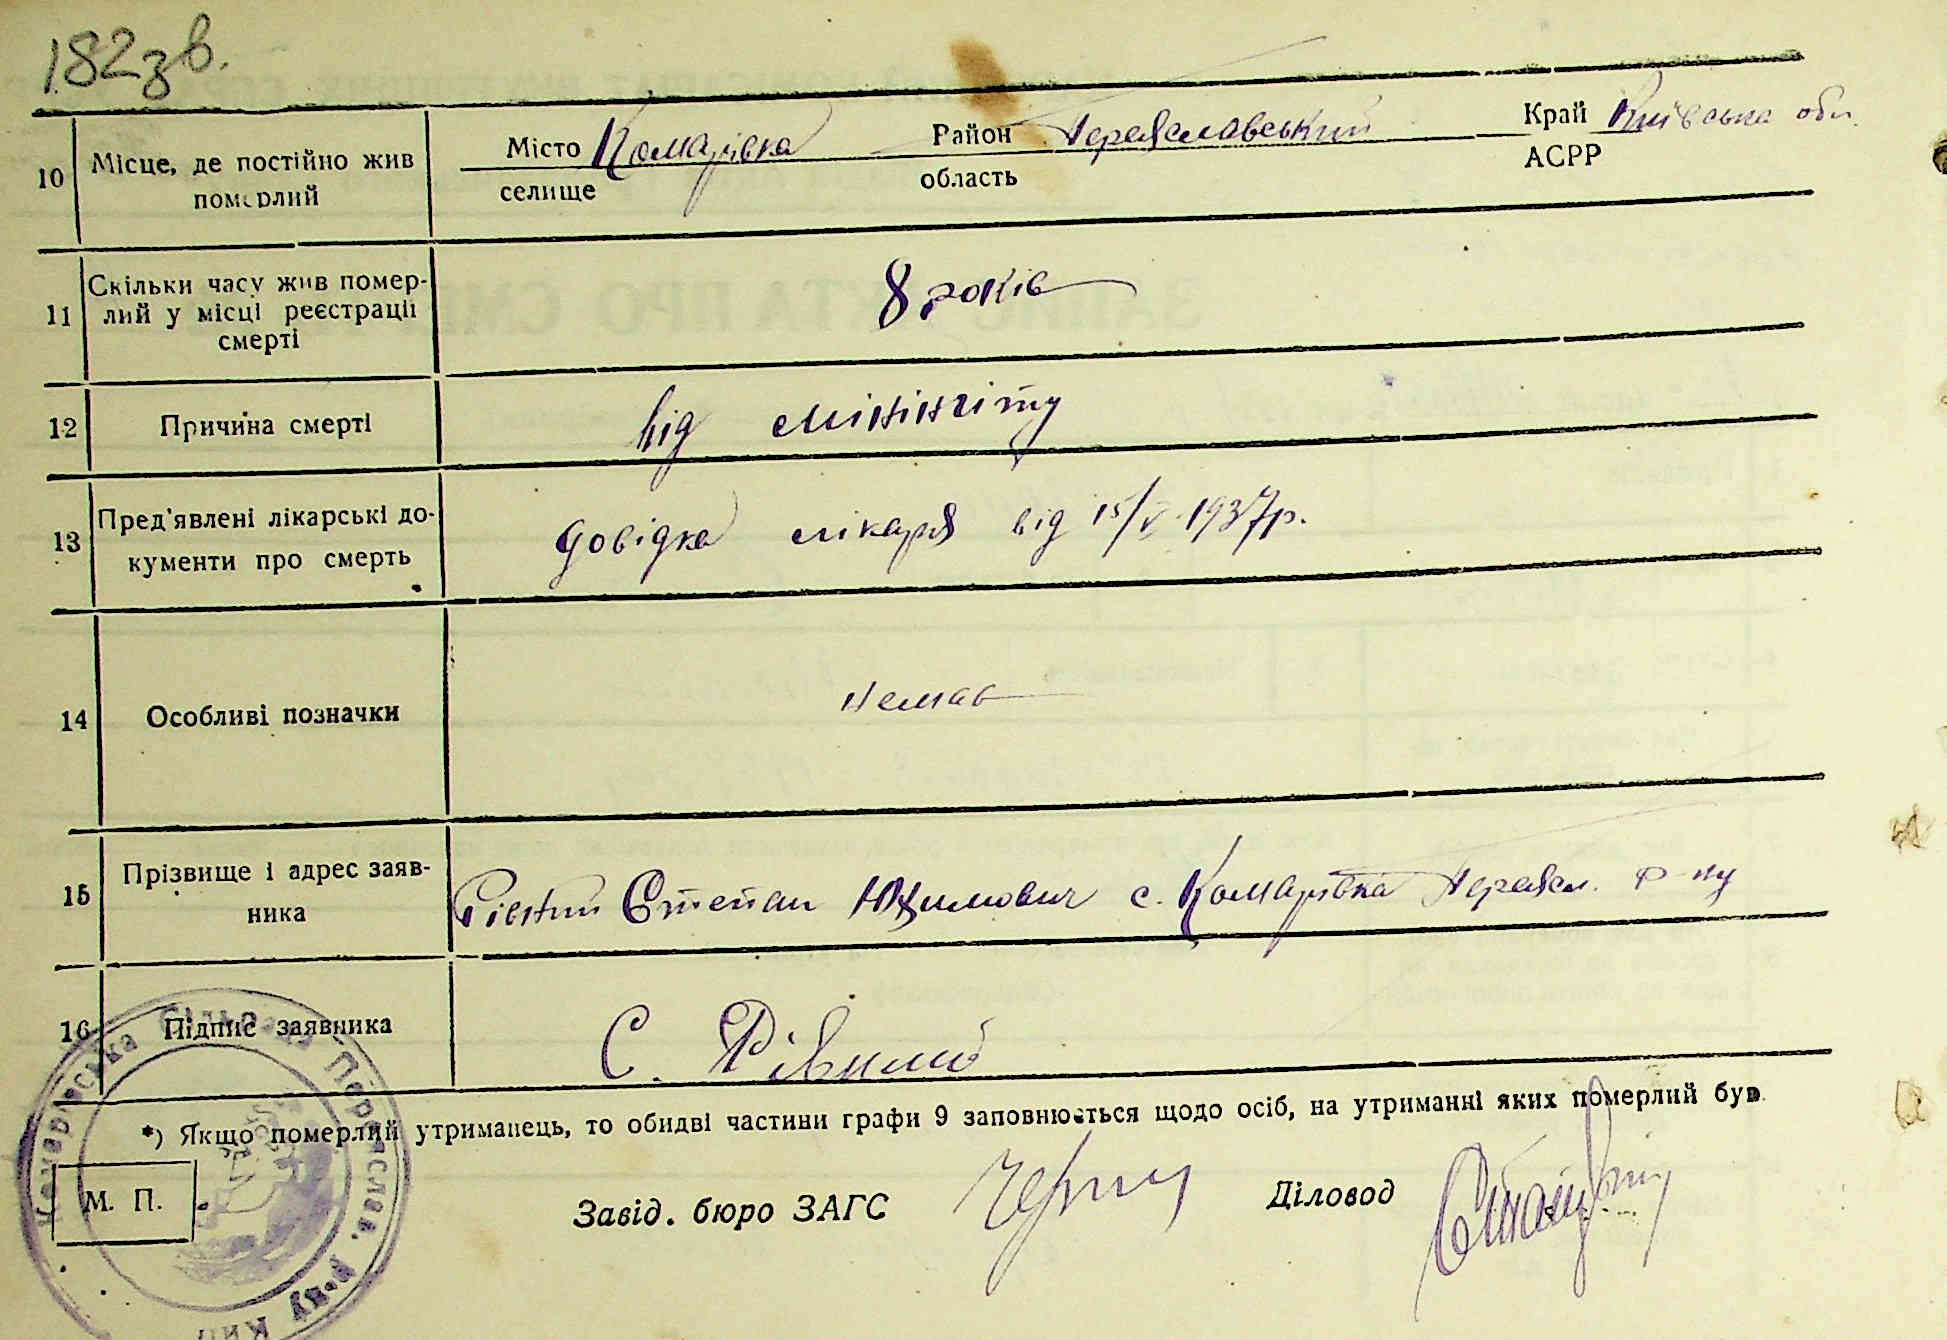 182 зв.
10 Місце, де постійно жив померлий
Місто Комарівка Район Переяславський Край Київська обл.
селище область АСРР
11 Скільки часу жив помер-
лий у місці реєстрації
смерті
8 років
12 Причина смерті
від минінгіту
13 Пред'явлені лікарські до-
кументи про смерть
довідка лікаря від 15/V 1937р.
14 Особливі позначки
немає
15 Прізвище і адрес заяв-
ника
Рівний Степан Юхимович с. Комарівка Переясл. р-ну
16 Підпис заявника
С. Рівний
*) Якщо померлий утриманець, то обидві частини графи 9 заповнюється щодо осіб, на утриманні яких померлий був.
М. П.
Завід. бюро ЗАГС
Діловод
Комарівська сільрада Переяслав. р-ну Киї